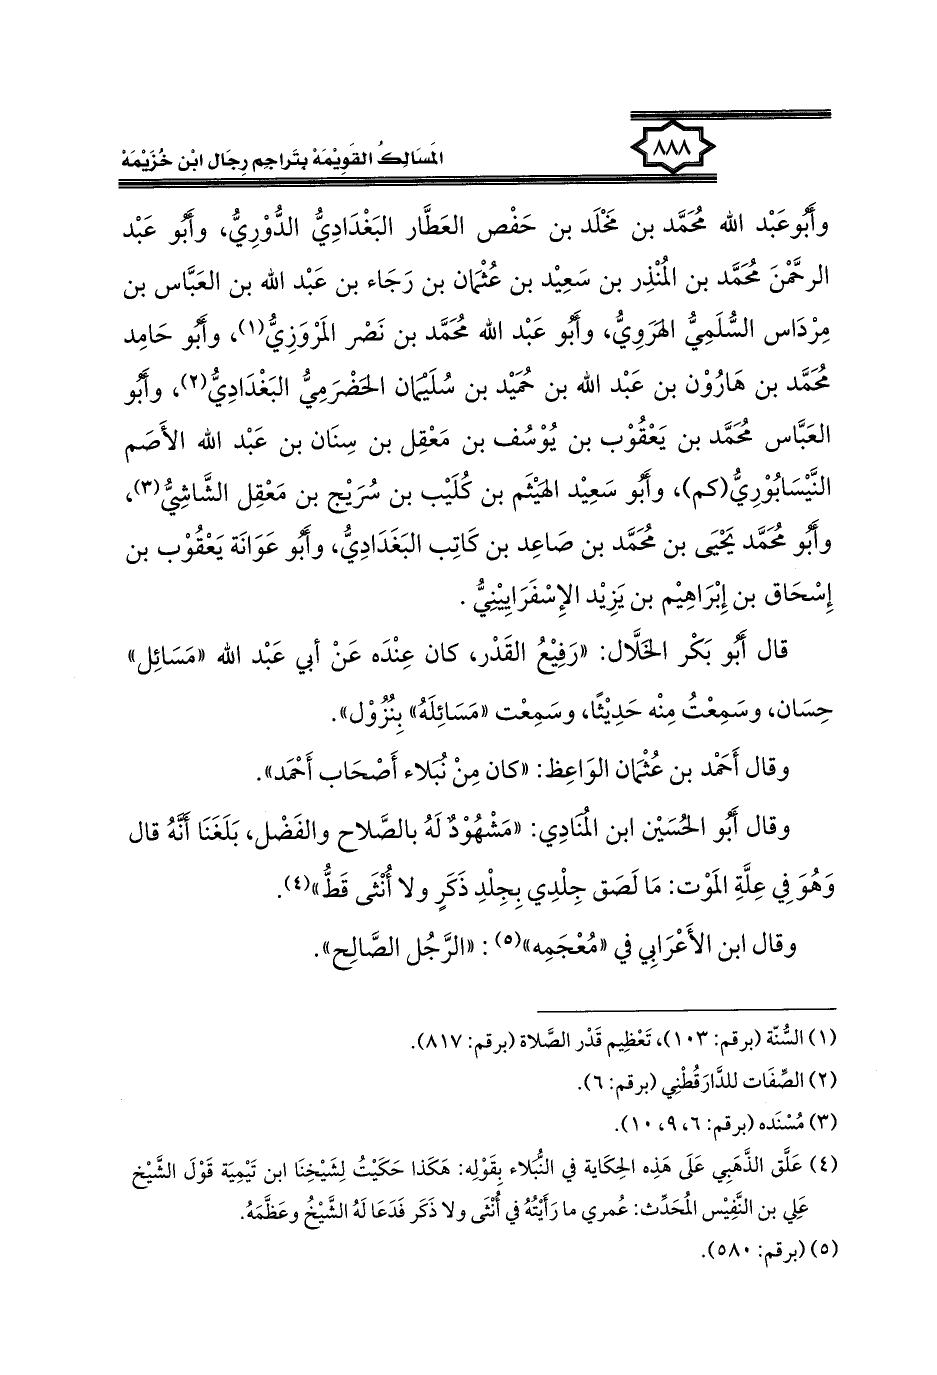 ٨٨٨
المَسَالِكُ القَوِيْمَة بِتَراجِم رِجَال ابْن خُزَيْمَة
وأَبُو عَبْد الله مُحَمَّد بن مَخْلَد بن حَفْص العَطَّار البَغْدَادِيُّ الدُّوْرِيُّ، وأَبُو عَبْد
الرحَّمْنَ مُحَمَّد بن المُنْذِر بن سَعِيْد بن عُثْمَان بن رَجَاء بن عَبْد الله بن العَبَّاس بن
مِرْدَاس السُّلَمِيُّ الهَرَوِيُّ، وأَبُو عَبْد الله مُحَمَّد بن نَصْر المَرْوَزِيُّ(١)، وأَبُو حَامِد
مُحَمَّد بن هَارُوْن بن عَبْد الله بن حُمَيْد بن سُلَيْمَان الحَضْرَمِيُّ البَغْدَادِيُّ(٢)، وأَبُو
العَبَّاس مُحَمَّد بن يَعْقُوْب بن يُوْسُف بن مَعْقِل بن سِنَان بن عَبْد الله الأَصَم
النَّيْسَابُوْرِيُّ(كم)، وأَبُو سَعِيْد الهَيْثَم بن كُلَيْب بن سُرَيْج بن مَعْقِل الشَّاشِيُّ(٣)،
وأَبُو مُحَمَّد يَحْيَى بن مُحَمَّد بن صَاعِد بن كَاتِب البَغَدَادِيُّ، وأَبُو عَوَانَة يَعْقُوْب بن
إِسْحَاق بن إِبْرَاهِيْم بن يَزِيْد الإِسْفَرَايِيْنِيُّ .
قال أَبُو بَكْر الخَلَّال: «رَفِيْعُ القَدْر، كان عِنْدَه عَنْ أبي عَبْد الله «مَسَائِل»
حِسَان، وسَمِعْتُ مِنْه حَدِيْثًا، وسَمِعْت «مَسَائِلَهُ» بِنُزُوْل».
وقال أَحْمَد بن عُثْمَان الوَاعِظ: «كان مِنْ نُبَلاء أَصْحَاب أَحْمَد».
وقال أَبُو الحُسَيْن ابن المُنَادِي: «مَشْهُوْدٌ لَهُ بالصَّلاح والفَضْل، بَلَغَنَا أَنَّهُ قال
وَهُوَ فِي عِلَّةِ المَوْت: مَا لَصَق جِلْدِي بِجِلْدِ ذَكَرٍ ولا أُنْثَى قَطُّ»(٤).
وقال ابن الأَعْرَابي فِي «مُعْجَمِه»(٥) : «الرَّجُل الصَّالِح».
(١) السُّنَّة (برقم: ١٠٣)، تَعْظِيم قَدْر الصَّلاة (برقم: ٨١٧).
(٢) الصِّفَات للدَّارَقُطْنِي (برقم: ٦).
(٣) مُسْنَده (برقم: ٦، ٩، ١٠).
(٤) عَلَّق الذَّهَبِي عَلَى هَذِه الحِكَايَة في النُّبَلاء بِقَوْلِه: هَكَذا حَكَيْتُ لِشَيْخِنَا ابن تَيْمِيَة قَوْل الشَّيْخ
عَلِي بن النَّفِيْس المُحَدِّث: عُمري ما رَأَيْتُهُ فِي أُنْثَى ولا ذَكَر فَدَعَا لَهُ الشَّيْخُ وعَظَّمَهُ.
(٥) (برقم: ٥٨٠).